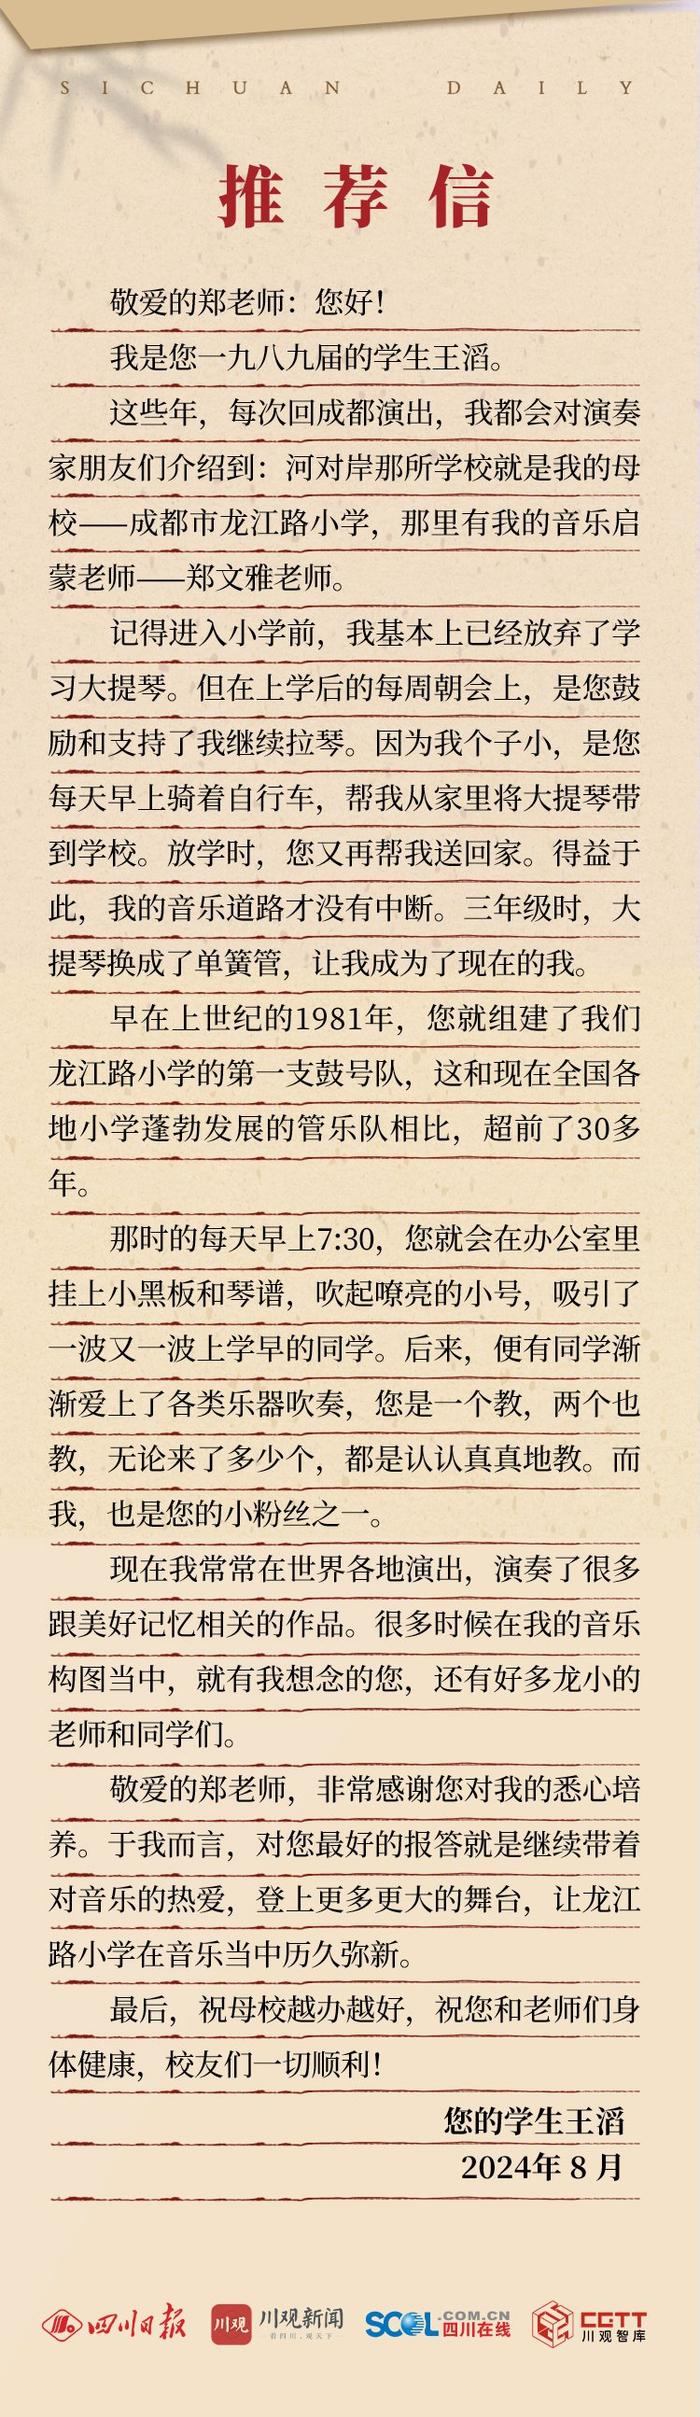 SICHUAN DAILY
推荐信
敬爱的郑老师：您好！
我是您一九八九届的学生王滔。
这些年，每次回成都演出，我都会对演奏
家朋友们介绍到：河对岸那所学校就是我的母
校——成都市龙江路小学，那里有我的音乐启
蒙老师——郑文雅老师。
记得进入小学前，我基本上已经放弃了学
习大提琴。但在上学后的每周朝会上，是您鼓
励和支持了我继续拉琴。因为我个子小，是您
每天早上骑着自行车，帮我从家里将大提琴带
到学校。放学时，您又再帮我送回家。得益于
此，我的音乐道路才没有中断。三年级时，大
提琴换成了单簧管，让我成为了现在的我。
早在上世纪的1981年，您就组建了我们
龙江路小学的第一支鼓号队，这和现在全国各
地小学蓬勃发展的管乐队相比，超前了30多
年。
那时的每天早上7:30，您就会在办公室里
挂上小黑板和琴谱，吹起嘹亮的小号，吸引了
一波又一波上学早的同学。后来，便有同学渐
渐爱上了各类乐器吹奏，您是一个教，两个也
教，无论来了多少个，都是认认真真地教。而
我，也是您的小粉丝之一。
现在我常常在世界各地演出，演奏了很多
跟美好记忆相关的作品。很多时候在我的音乐
构图当中，就有我想念的您，还有好多龙小的
老师和同学们。
敬爱的郑老师，非常感谢您对我的悉心培
养。于我而言，对您最好的报答就是继续带着
对音乐的热爱，登上更多更大的舞台，让龙江
路小学在音乐当中历久弥新。
最后，祝母校越办越好，祝您和老师们身
体健康，校友们一切顺利！
您的学生王滔
2024年 8 月
四川日报 川观 川观新闻 SCOL .COM.CN 四川在线 CGTT 川观智库